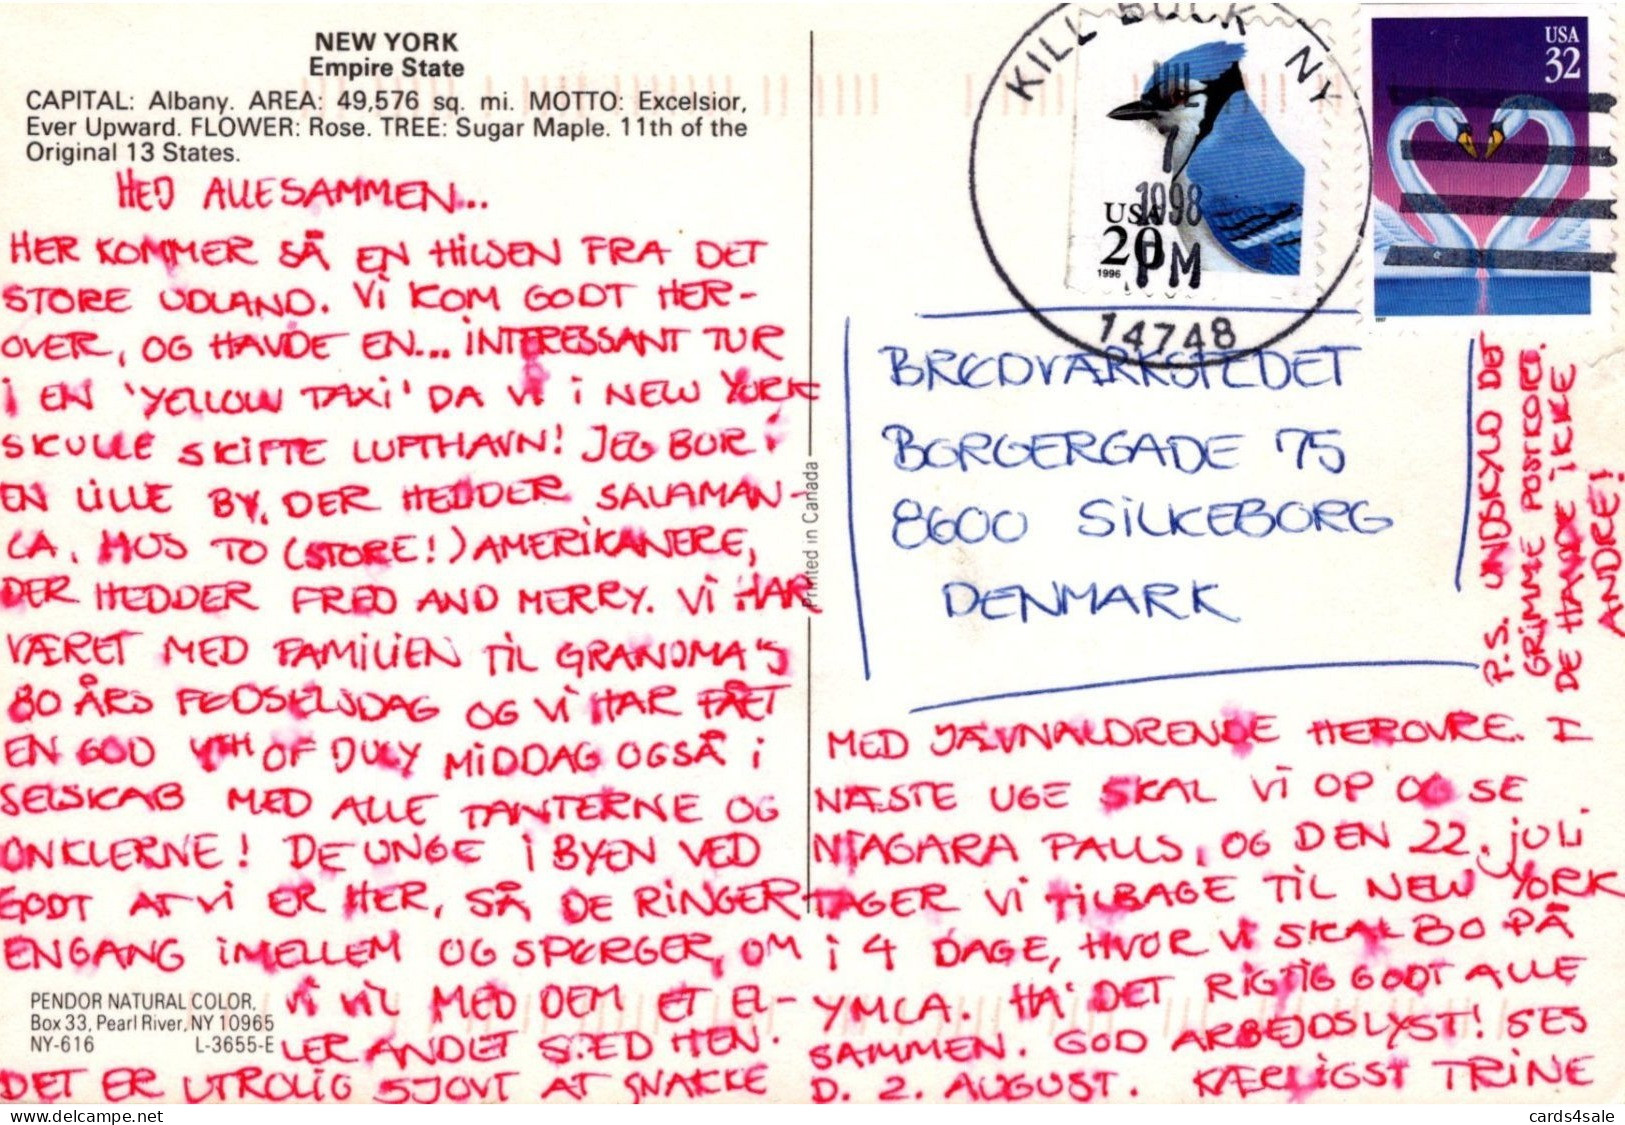 NEW YORK
Empire State
CAPITAL: Albany. AREA: 49,576 sq. mi. MOTTO: Excelsior,
Ever Upward. FLOWER: Rose. TREE: Sugar Maple. 11th of the
Original 13 States.
HEJ ALLESAMMEN...
HER KOMMER SÅ EN HILSEN FRA DET
STORE UDLAND. VI KOM GODT HER-
OVER, OG HAVDE EN... INTERESSANT TUR
I EN 'YELLOW TAXI' DA VI I NEW YORK
SKULLE SKIFTE LUFTHAVN! JEG BOR I
EN LILLE BY, DER HEDDER SALAMAN-
CA, HOS TO (STORE!) AMERIKANERE,
DER HEDDER FRED AND MERRY. VI HAR
VÆRET MED FAMILIEN TIL GRANDMA'S
80 ÅRS FØDSELSDAG OG VI HAR FÅET
EN GOD 4TH OF JULY MIDDAG OGSÅ I
SELSKAB MED ALLE TANTERNE OG
ONKLERNE! DE UNGE I BYEN VED
GODT AT VI ER HER, SÅ DE RINGER
ENGANG IMELLEM OG SPØRGER, OM
VI VIL MED DEM ET EL-
LER ANDET STED HEN.
DET ER UTROLIG SJOVT AT SNAKKE
PENDOR NATURAL COLOR,
Box 33, Pearl River, NY 10965
NY-616 L-3655-E
Printed in Canada
KILL BUCK NY
JUL
7
1998
PM
14748
USA
20
1996
USA
32
1997
BRØDVÆRKSTEDET
BORGERGADE 75
8600 SILKEBORG
DENMARK
P.S. UNDSKYLD DET
GRIMME POSTKORT.
DE HAVDE IKKE
ANDRE!
MED JÆVNALDRENDE HEROVRE. I
NÆSTE UGE SKAL VI OP OG SE
NIAGARA FALLS, OG DEN 22. JULI
TAGER VI TILBAGE TIL NEW YORK
I 4 DAGE, HVOR VI SKAL BO PÅ
YMCA. HA' DET RIGTIG GODT ALLE
SAMMEN. GOD ARBEJDSLYST! SES
D. 2. AUGUST. KÆRLIGST TRINE
cards4sale